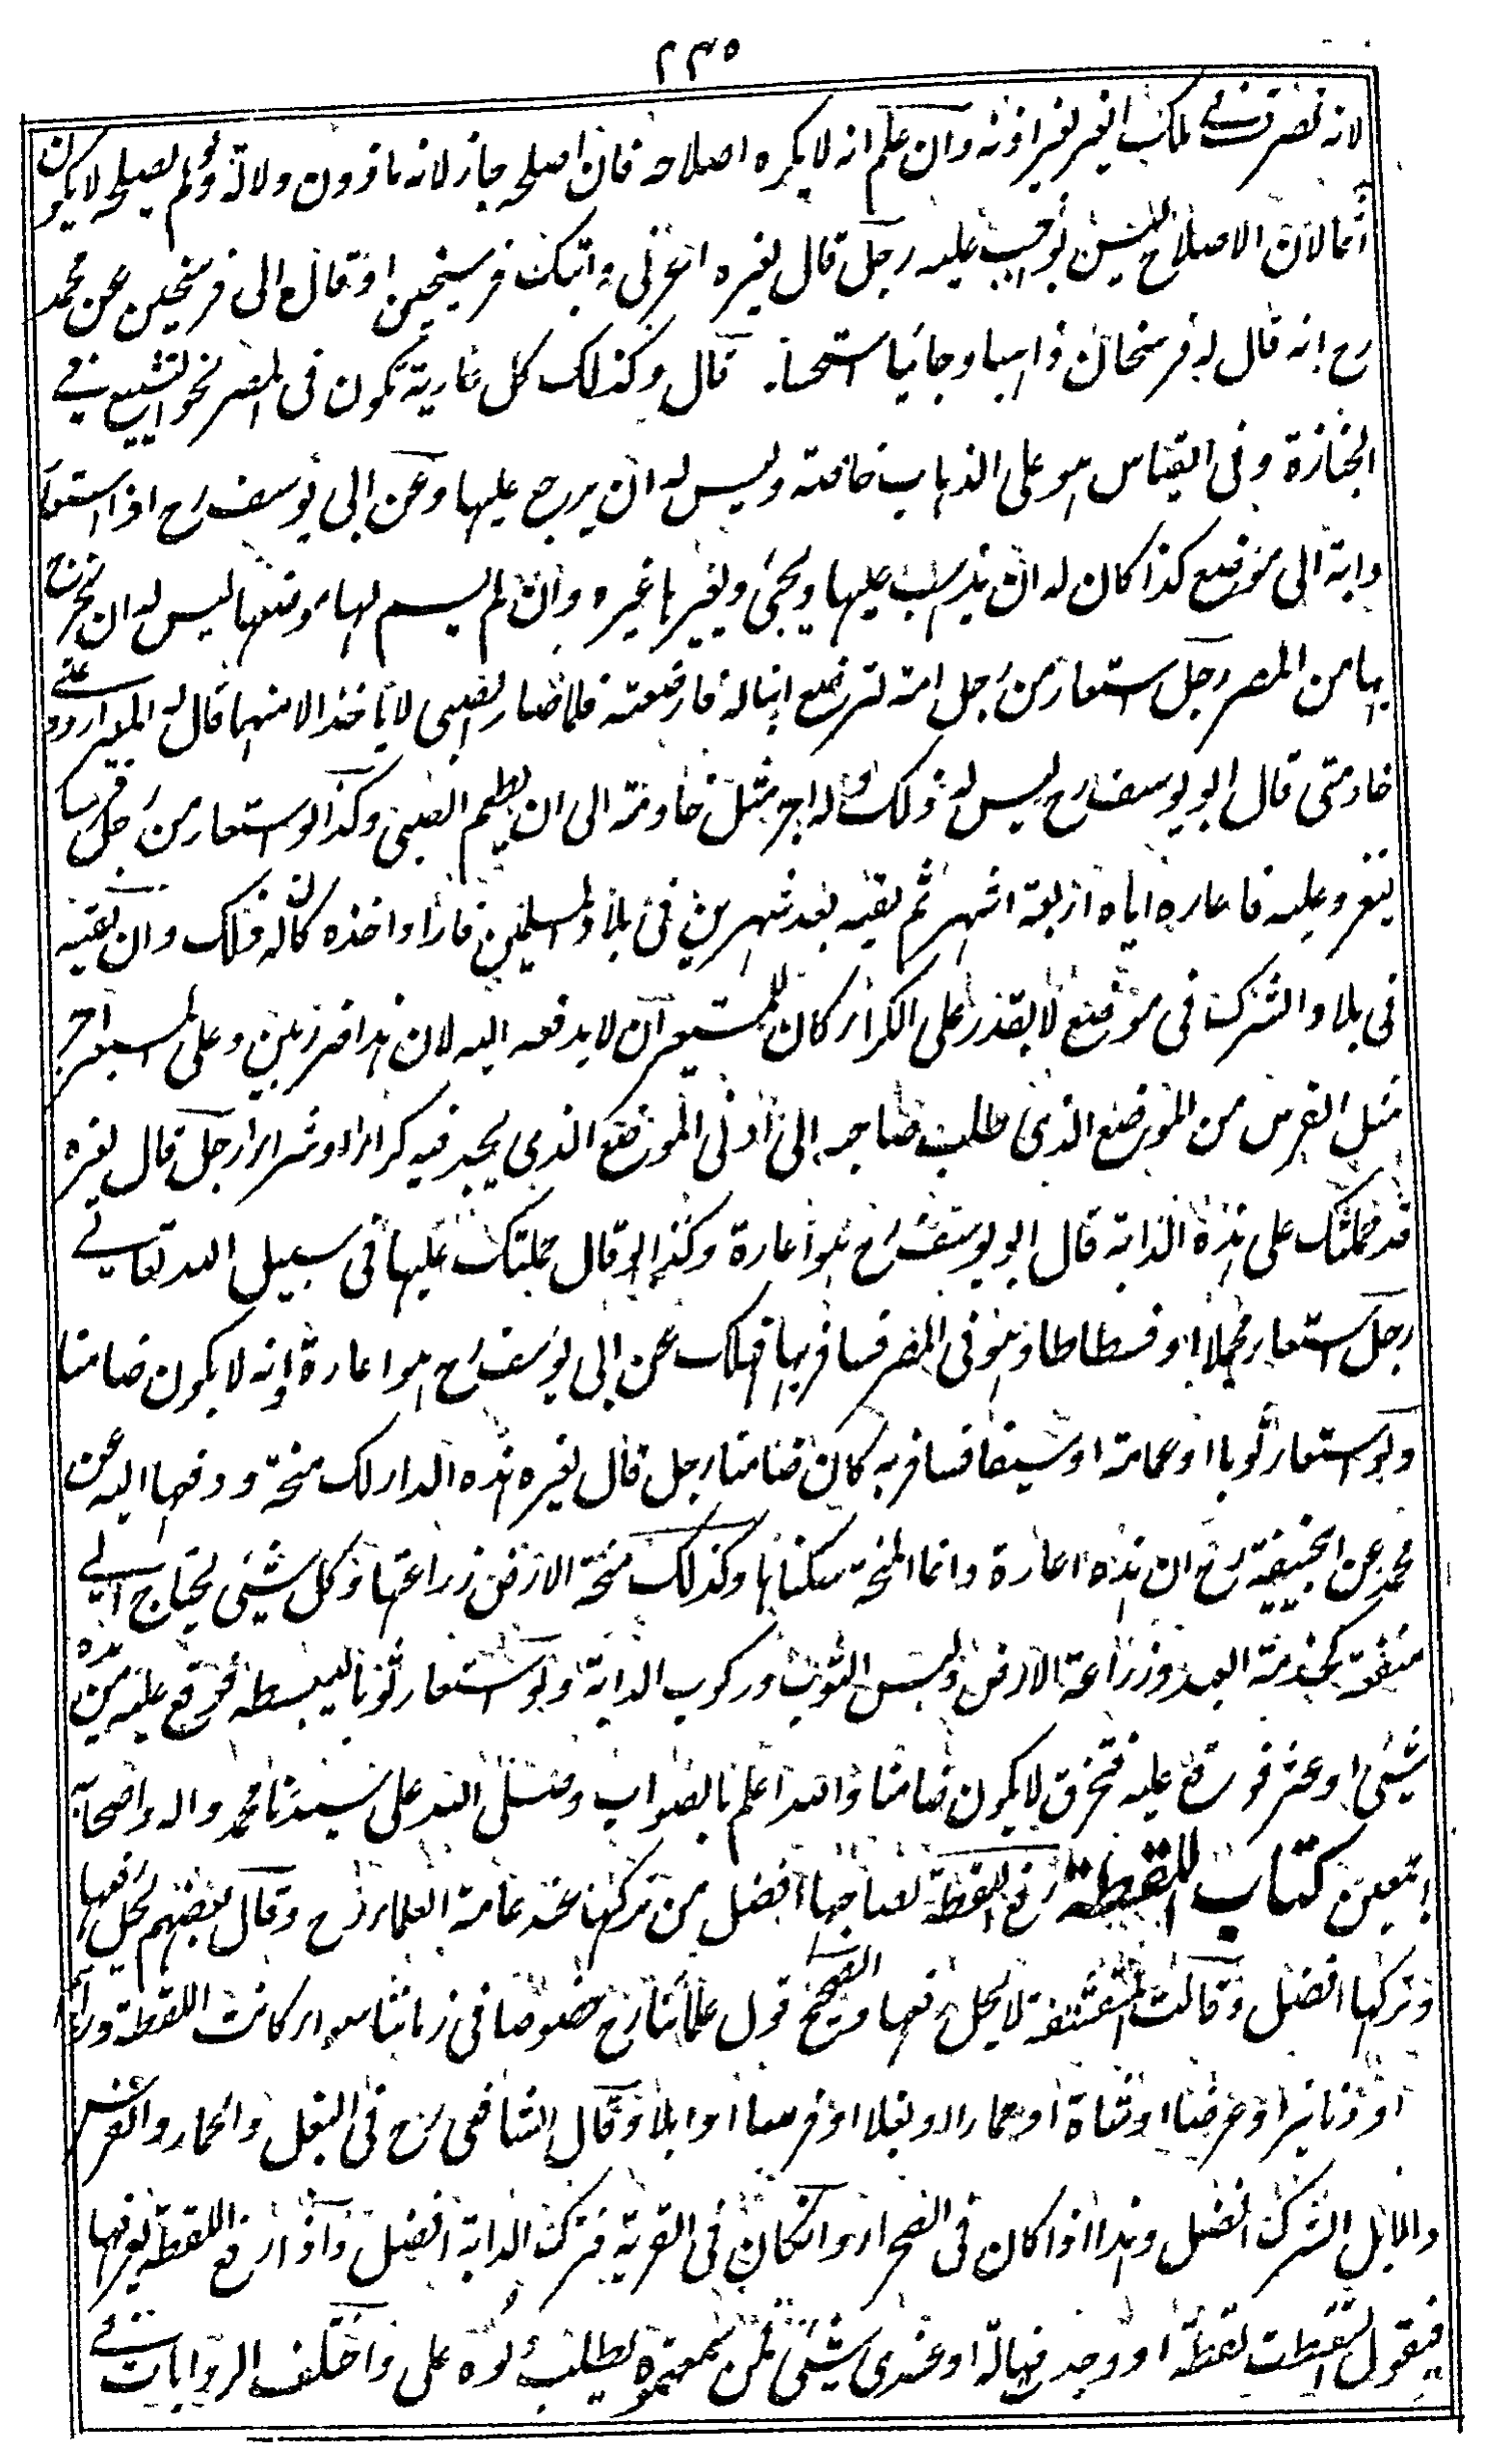 ٢٣٥
لانه تصرف في ملك الغير بغير اذنه وان علم انه لا يكره اصلاحه فان اصلحه جاز لانه ماذون دلالة ولو لم يصلحه لا يكون
آثما لان الاصلاح ليس بواجب عليه رجل قال لغيره اعرني دابتك فرسخين او قال الى فرسخين عن محمد
رح انه قال له فرسخان ذاهبا وجائيا استحسانا قال وكذلك كل عارية تكون في المصر نحو التشييع في
الجنازة وفي القياس هو على الذهاب خاصة وليس له ان يرجع عليها وعن ابي يوسف رح اذا استعار
دابة الى موضع كذا كان له ان يذهب عليها ويجئ ويعيرها غيره وان لم يسم لها موضعا ليس له ان يخرج
بها من المصر رجل استعار من رجل امة لترضع ابنا له فارضعته فلما صار الصبي لا ياخذ الا منها قال له المعير اردد علي
خادمتي قال ابو يوسف رح ليس له ذلك وله اجر مثل خادمته الى ان يفطم الصبي وكذا لو استعار من رجل فرسا
ليغزو عليه فاعاره اياه اربعة اشهر ثم لقيه بعد شهرين في بلاد المسلمين فاراد اخذه كان له ذلك وان لقيه
في بلاد الشرك في موضع لا يقدر على الكراء كان للمستعير ان لا يدفعه اليه لان هذا ضرر بين وعلى المستعير اجر
مثل الفرس من الموضع الذي طلب صاحبه الى ادنى الموضع الذي يجد فيه كراء او شراء رجل قال لغيره
قد حملتك على هذه الدابة قال ابو يوسف رح هو اعارة وكذا لو قال حملتك عليها في سبيل الله تعالى
رجل استعار محملا او فسطاطا وهو في المصر فسافر بها فهلك عن ابي يوسف رح هو اعارة وانه لا يكون ضامنا
ولو استعار ثوبا او عمامة او سيفا فسافر به كان ضامنا رجل قال لغيره هذه الدار لك منحة ودفعها اليه عن
محمد عن ابي حنيفة رح ان هذه اعارة وانما المنحة سكناها وكذلك منحة الارض زراعتها وكل شيئ يحتاج الى
منفعة كخدمة العبد وزراعة الارض ولبس الثوب وركوب الدابة ولو استعار ثوبا ليبسطه فوقع عليه من يده
شيئ او عثر فوقع عليه فتخرق لا يكون ضامنا والله اعلم بالصواب وصلى الله على سيدنا محمد واله واصحابه
اجمعين كتاب اللقطة رفع اللقطة لصاحبها افضل من تركها عند عامة العلماء رح وقال بعضهم يحل رفعها
وتركها افضل وقالت المتقشفة لا يحل رفعها والصحيح قول علمائنا رح خصوصا في زماننا سواء كانت اللقطة دراهم
او دنانير او عرضا او شاة او حمارا او بغلا او فرسا او ابلا وقال الشافعي رح في البغل والحمار والفرس
والابل الترك افضل وهذا اذا كان في الصحراء وان كان في القرية فترك الدابة افضل واذا رفع اللقطة يعرفها
فيقول التقطت لقطة او وجدت ضالة او عندي شيئ فمن سمعتموه يطلب دلوه علي واختلف الروايات في